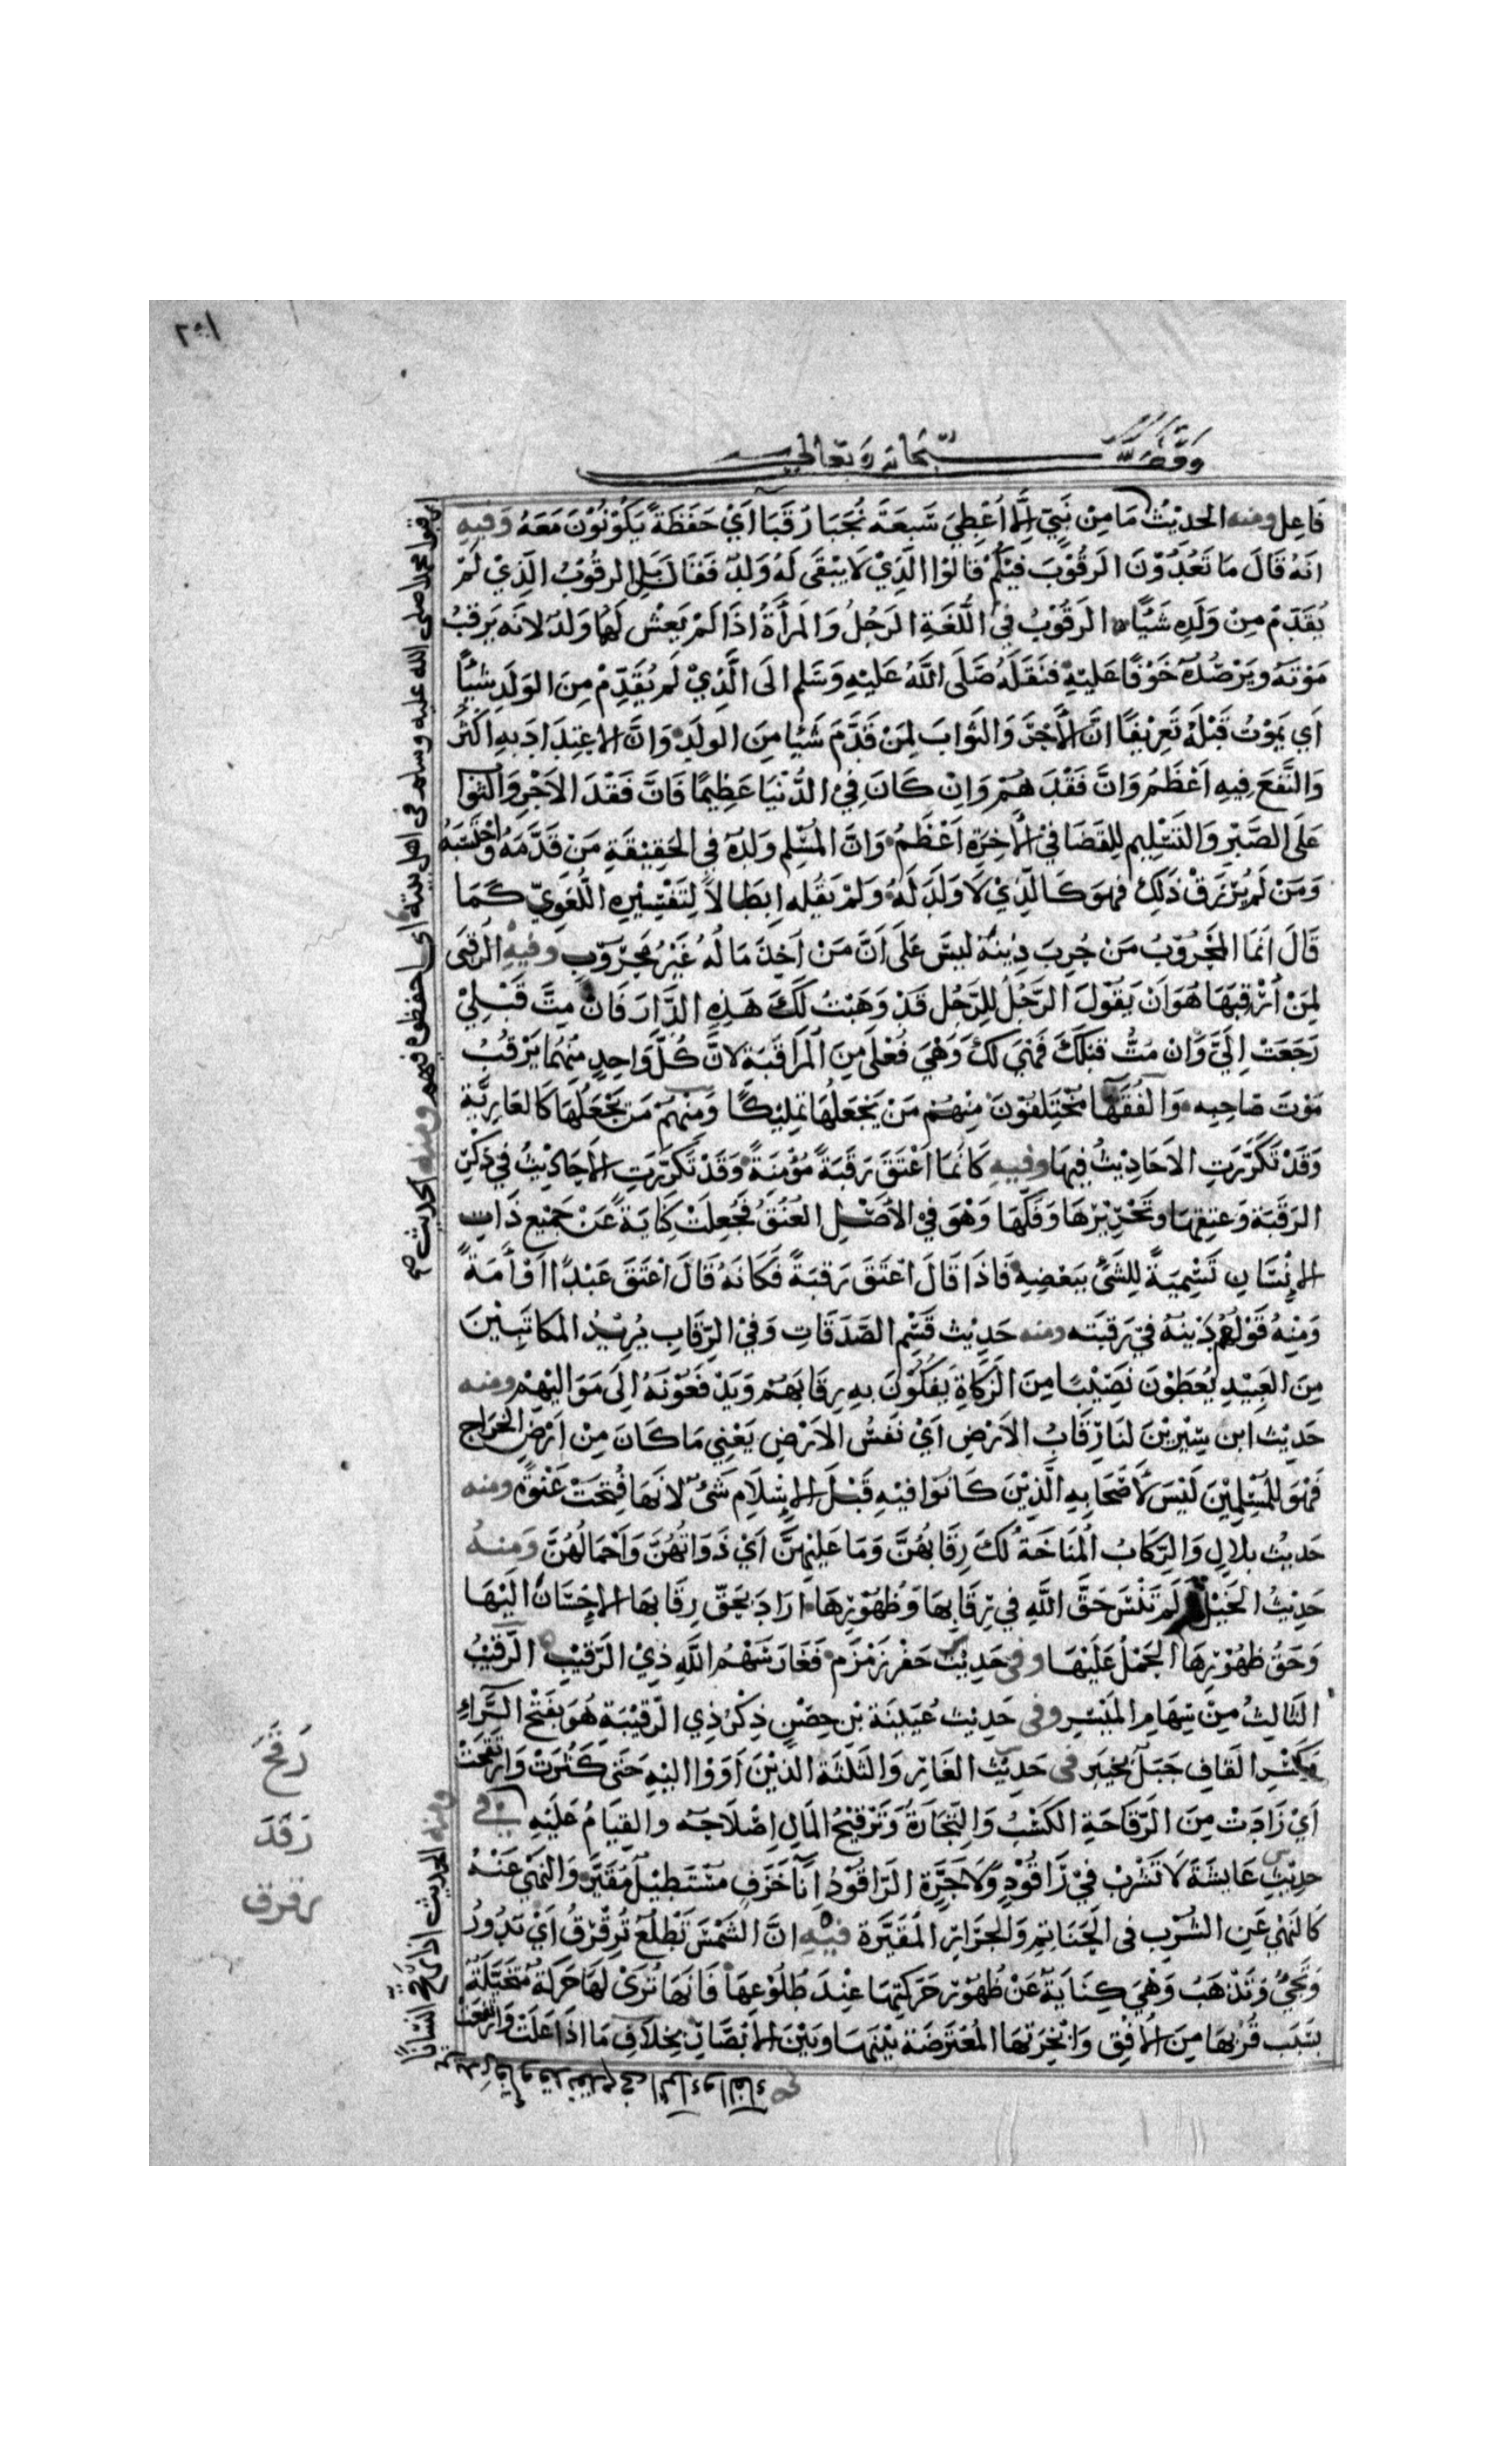 ٢٥١
وقف لله سبحانه وتعالى
فَاعِل ومنه الحَدِيْثُ مَا مِنْ نَبِيّ إِلَّا أُعْطِيَ سَبعَةَ نُجَبَا رُقَبَا أَيْ حَفَظَةً يَكُوْنُوْنَ مَعَهُ وَفيهِ
انَهُ قَالَ مَا تَعُدُّوْنَ الرقُوْبَ فيْكُمْ قَالُوْا الَّذِيْ لَا يَبْقَى لَهُ وَلدٌ فَقَالَ بَلِ الرقُوْبُ الَّذِيْ لَمْ
يُقَدِّمْ مِنْ وَلَدِهِ شَيْأً الرَقُوْبُ فِي اللُّغَةِ الرَجُلُ وَالمَرأَةُ اذَا لَمْ يَعِشْ لَهُمَا وَلدٌ لانَه يَرقبُ
مَوْتَهُ ويَرْصُدُهُ خَوْفًا عَليْهِ فَنَقَلَهُ صَلَى اللَّهُ عَليْهِ وَسَلم الَى الَّذِيْ لَم يُقَدِّمْ مِنَ الوَلَدِ شيْأً
أَي يَمُوْتُ قَبْلَهُ تَعرِيْفًا انَّ الأَجْرَ وَالثَوابَ لِمَنْ قَدَّمَ شَيْأ مِنَ الولَدِ وَانَّ الاعتِدَادَ بهِ اكْثَرُ
وَالنَّفعَ فِيهِ اعْظَمُ وَانَّ فَقْدَهُمْ وَانْ كَانَ فِي الدُّنْيَا عَظِيمًا فَانَّ فَقْدَ الاَجْرِ وَالثوَا
عَلَى الصَّبْرِ وَالتَسْلِيمِ لِلقَضَا فِيْ الأَخِرَةِ أَعْظَمُ وَانَّ المُسْلِم وَلدُهُ فِي الحَقِيْقَةِ مَنْ قَدَّمَهُ وَاحْتَسَبَهُ
وَمَنْ لَمْ يُرْزَقْ ذَلِكَ فهوَ كَالَّذِيْ لاَ وَلَدَ لَهُ وَلَمْ يَقُلهِ ابطَالاً لِتَفْسِيْرِهِ اللُّغَوِيّ كَمَا
قَالَ انمَا المَحْرُوْبُ مَنْ حُرِبَ دِيْنَهُ ليسَ عَلَى أَنَّ مَنْ أُخِذَ مَالُهُ غَيْرُ مَحْرُوْبٍ وفيهِ الرُقبَى
لِمَنْ أُرْقِبَهَا هُوَ انْ يَقُوْلَ الرَّجُلُ لِلرَّجُلِ قَدْ وَهَبْتُ لَكَ هَذِهِ الدَّارَ فَانْ مِتَّ قَبْلِيْ
رَجَعَتْ إِلَيَّ وَانْ مُتُّ قَبْلَكَ فَهْيَ لَكَ وَهْيَ فُعْلَى مِنَ المُرَاقَبَةِ لانَّ كُلَّ وَاحِدٍ مِنْهُمَا يَرْقُبُ
مَوْتَ صَاحِبِهِ وَالفُقَهَا مُخْتَلِفُوْنَ مِنْهُمْ مَنْ يَجْعَلُهَا تَمْلِيْكًا وَمِنْهُمْ مَنْ يَجْعَلُهَا كَالعَارِيَّةِ
وَقَدْ تَكَرَّرَتِ الاَحَادِيْثُ فِيهَا وفيهِ كَانَمَا اعْتَقَ رَقَبَةً مُؤْمِنَةً وَقَدْ تَكَرَّرَتِ الأَحَادِيْثُ فِي ذِكْرِ
الرَقَبَة وَعتقِهَا وَتَحْرِيْرِهَا وَفَكِّهَا وَهْوَ فِيْ الأَصْلِ العُنُقُ فَجُعِلَتْ كِنَايَةً عَنْ جَمِيْعِ ذَاتِ
الإِنْسَانِ تَسْمِيَةً لِلشَيْءِ بِبَعْضِهِ فَاذَا قَالَ اعْتَقَ رَقَبَةً فَكَانَهُ قَالَ اعْتَقَ عَبْدًا اَوْ أَمَةً
وَمِنْهُ قَوْلُهُمْ ذَنْبُهُ فِي رَقَبَتِهِ ومنه حَدِيْثُ قَسْمِ الصَّدَقَاتِ وَفِيْ الرِّقَابِ يُرِيْدُ المُكَاتَبِيْنَ
مِنَ العَبِيْدِ يُعْطَوْنَ نَصِيْبًا مِنَ الزَكَاةِ يَفُكُّوْنَ بِهِ رِقَابَهُمْ وَيَدْفَعُوْنَهُ الَى مَوَالِيْهِمْ ومنه
حَدِيْث ابن سِيْرِيْنَ لنَا رِقَابُ الاَرْضِ أَيْ نَفسُ الاَرْضِ يَعْنِي مَا كَانَ مِنْ اَرْضِ الخَرَاجِ
فَهْوَ لِلْمُسْلِمِيْنَ لَيْسَ لأَصْحَابِهِ الَّذِيْنَ كَانُوْا فيْهِ قَبْلَ الإِسْلَامِ شَيْءٌ لانَهَا فُتِحَتْ عَنْوَةً ومنه
حَدِيْث بِلاَلٍ وَالرِّكَابُ المُنَاخَةُ لَكَ رِقَابُهُنَّ وَمَا عَلَيْهِنَّ أَيْ ذَوَاتُهُنَّ وَاَحْمَالُهُنَّ وَمنهُ
حَدِيْثُ الخَيْلِ لَم يَنْسَ حَقَّ اللَّهِ فِي رِقَابِهَا وَظُهُوْرِهَا ارَادَ بِحَقّ رِقَابِهَا الاِحْسَانَ الَيْهَا
وَحَقُّ ظُهُوْرِهَا الحَمْلُ عَلَيْهَا وفى حَدِيْث حَفْرِ زَمْزَم فَغَارَ سَهْمُ اللَّهِ ذِيْ الرَقِيْبِ الرَّقِيْبُ
الثَالِثُ مِنْ سِهَامِ المَيْسِرِ وفى حَدِيْث عُيَيْنَةَ بْنِ حِصْنٍ ذِكْرُ ذِي الرَّقِيْبَةِ هُوَ بِفَتْحِ الرَّاءِ
وَكَسْرِ القَافِ جَبَلٌ بخيبَر فى حَدِيْث الغَارِ وَالثَلثَة الذيْنَ اَوَوْا اليْهِ حَتَى كَثُرَتْ وَارتَقَحَتْ
أَيْ زَادَتْ مِنَ الرَّقَاحَةِ الكَسْبُ وَالتِجَارَةُ وَتَرْقِيْحُ المَالِ إِصْلَاحُهُ وَالقِيَامُ عَلَيْهِ في
حدِيْث عَايشَةَ لاَ تَشْرَبْ فِيْ رَاقُوْدٍ وَلاَ جَرَّةٍ الرَّاقُوْدُ إِنَآ خَزَفٍ مُسْتَطِيْلٌ مُقَيَّرٌ وَالنهْيُ عَنْهُ
كَالنَهْيِ عَنِ الشُرْبِ فى الحَنَاتِمِ وَالجِرَارِ المُقَيَّرَة فيهِ انَّ الشَمْسَ تَطْلُعُ تُرَقْرَقُ أَيْ تَدُوْرُ
وَتَجِيُ وَتَذْهَبُ وَهْيَ كِنَايَةٌ عَنْ ظُهُوْرِ حَرَكَتِهَا عِنْدَ طُلُوْعِهَا فَانَهَا تُرَىْ لَهَا حَرَكَةٌ مُتَخَيَّلَةٌ
بِسَبَب قُرْبِهَا مِنَ الأُفُقِ وَابْخِرَتِهَا المُعْتَرِضَة بَيْنَهَا وبَيْنَ الاَبْصَارِ بِخِلَافِ مَا اذَا عَلَتْ وَارتَفَعَت
ارقبوا محمدا صلى الله عليه وسلم فى اهل بيته اى احفظوه فيهم ومنه الحديث صح
رَقَحَ
رَقَدَ
رقرق
ومنه الحديث اذا رَقَّحَ انسانًا
يريد رفأ وقد تقدم فى الراء والفاء صح